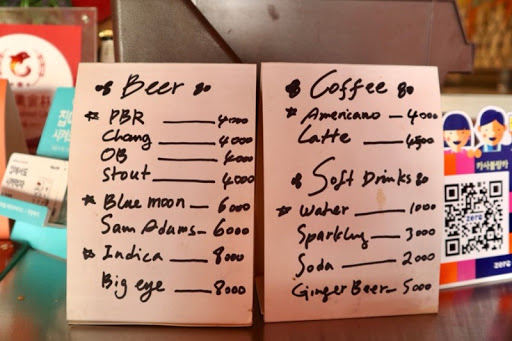 Beer
PBR — 4000
Chang — 4000
OB — 4000
Stout — 4000
Blue moon — 6000
Sam Adams — 6000
Indica — 8000
Big eye — 8000
Coffee
Americano — 4000
Latte — 4500
Soft Drinks
Water — 1000
Sparkling — 3000
Soda — 2000
Ginger Beer — 5000
zero